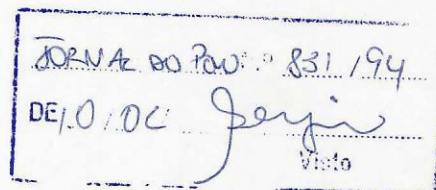 JORNAL DO POVO 831/94
DE 10/06
Visto